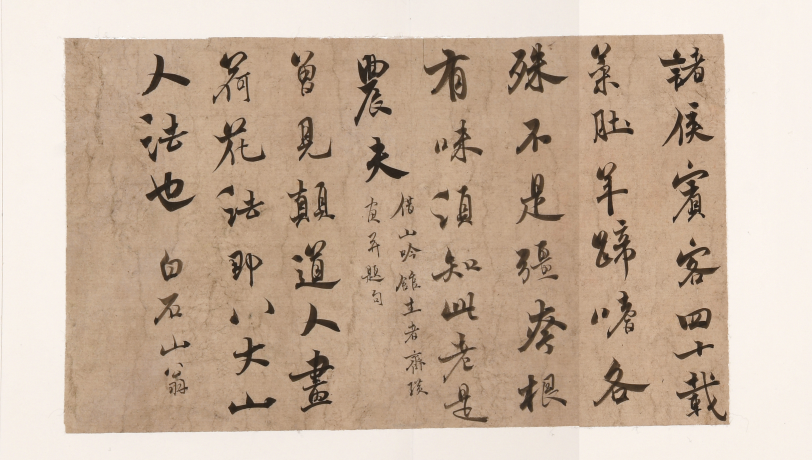 諸侯賓客四十載
菜肚羊蹄嗜各
殊不是彊夸根
有味須知此老是
農夫
借山吟館主者齊璜
并題句
曾見顛道人畫
荷花法即八大山
人法也 白石山翁